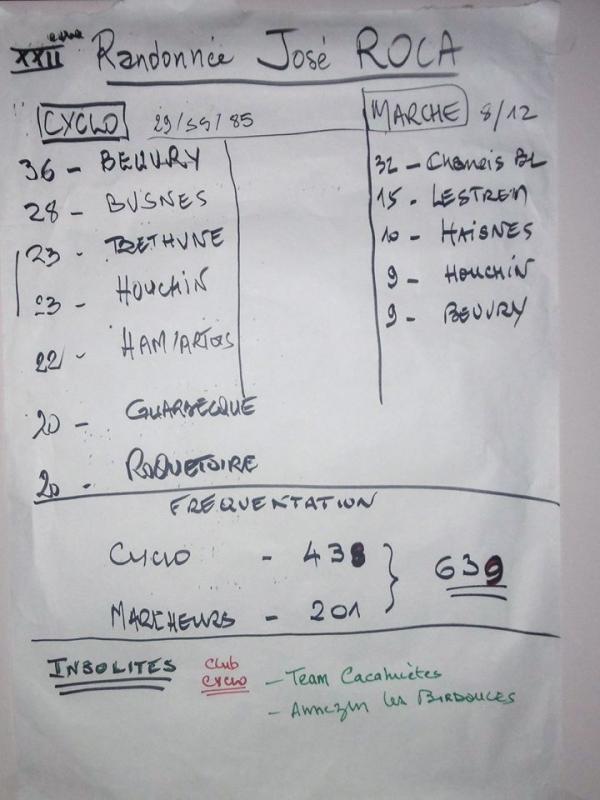 XXII eme Randonnée José ROCA
CYCLO 29/59/85
MARCHE 8/12
36 - BEUVRY
28 - BUSNES
23 - BETHUNE
23 - HOUCHIN
22 - HAM/ARTOIS
20 - GUARBECQUE
20 - ROQUETOIRE
32 - BL
15 - LESTREM
10 - HAISNES
9 - HOUCHIN
9 - BEUVRY
FREQUENTATION
CYCLO - 438
MARCHEURS - 201
639
INSOLITES
Club
cyclo
- Team Cacahuètes
- Annezin les BIRDOUCES